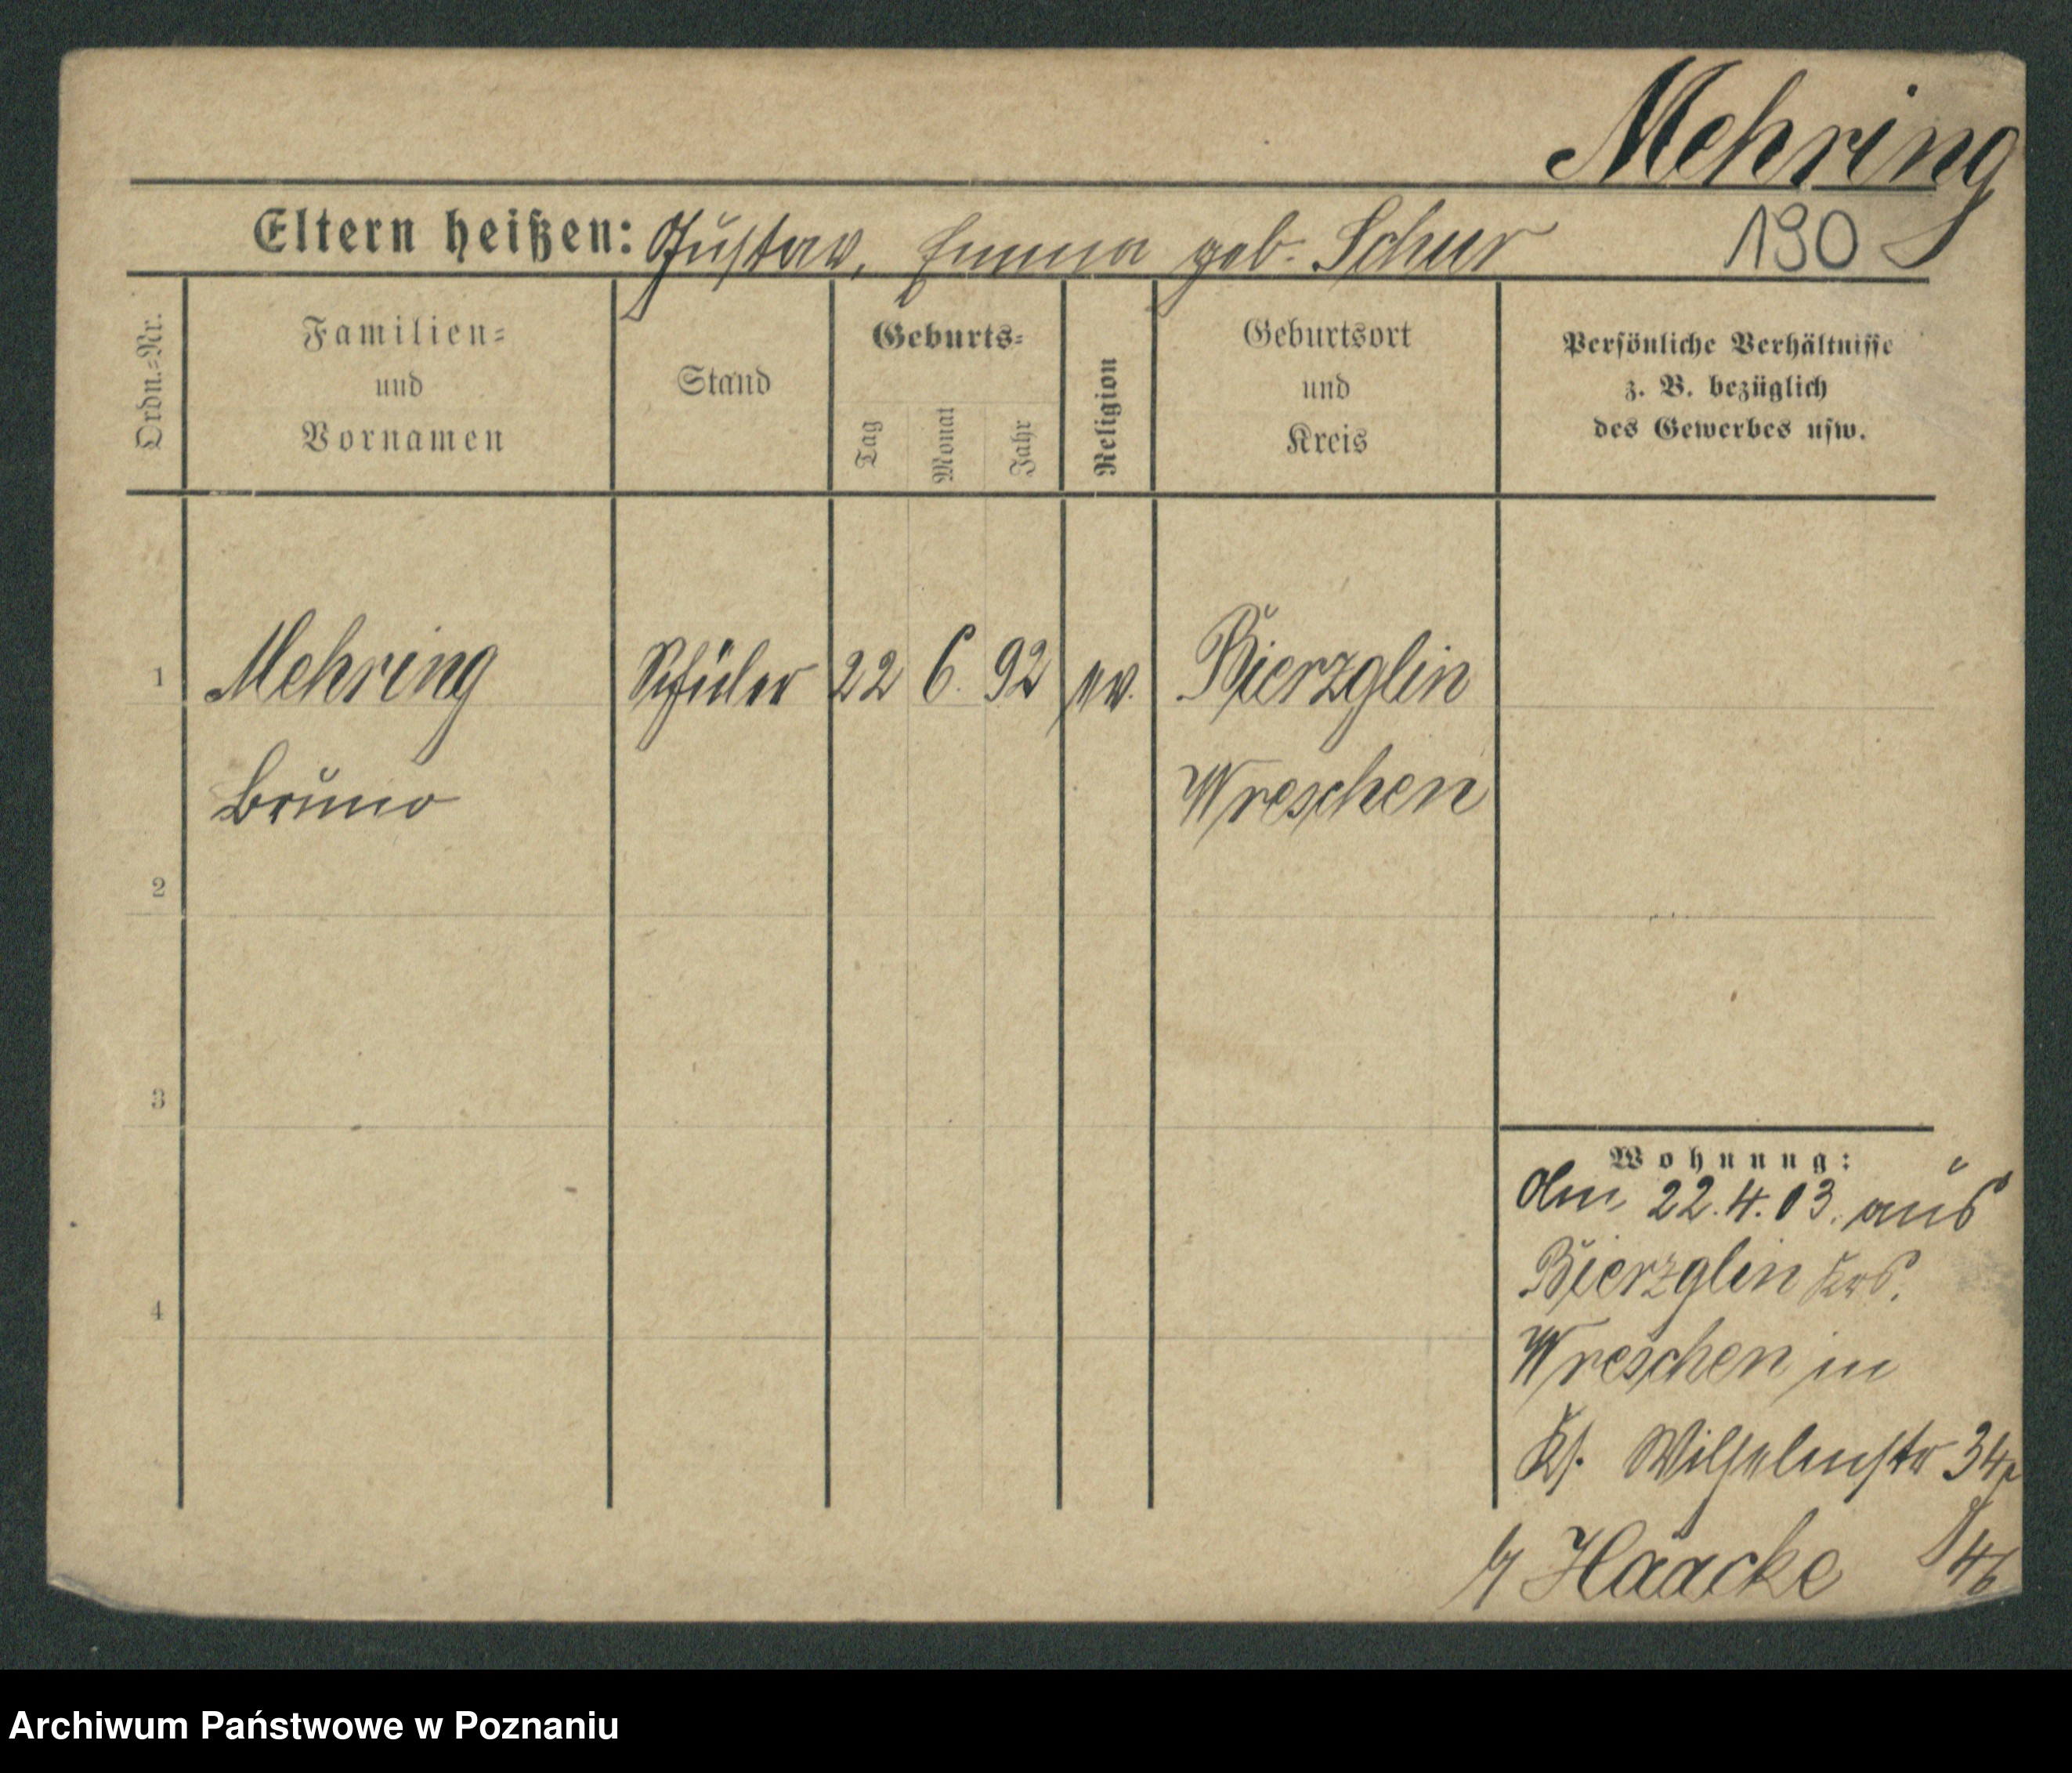 Mehring
Eltern heißen: Gustav, Emma geb. Schur 190
Ordn.=Nr.
Familien=
und
Vornamen
Stand
Geburts=
Tag
Monat
Jahr
Religion
Geburtsort
und
Kreis
Persönliche Verhältnisse
z. B. bezüglich
des Gewerbes usw.
1 Mehring Schüler 22 6. 92 ev. Bierzglin
Bruno Wreschen
2
3
4
Wohnung:
Am 22.4.03. aus
Bierzglin Krs.
Wreschen in
Wilhelmstr 34
Haacke
Archiwum Państwowe w Poznaniu